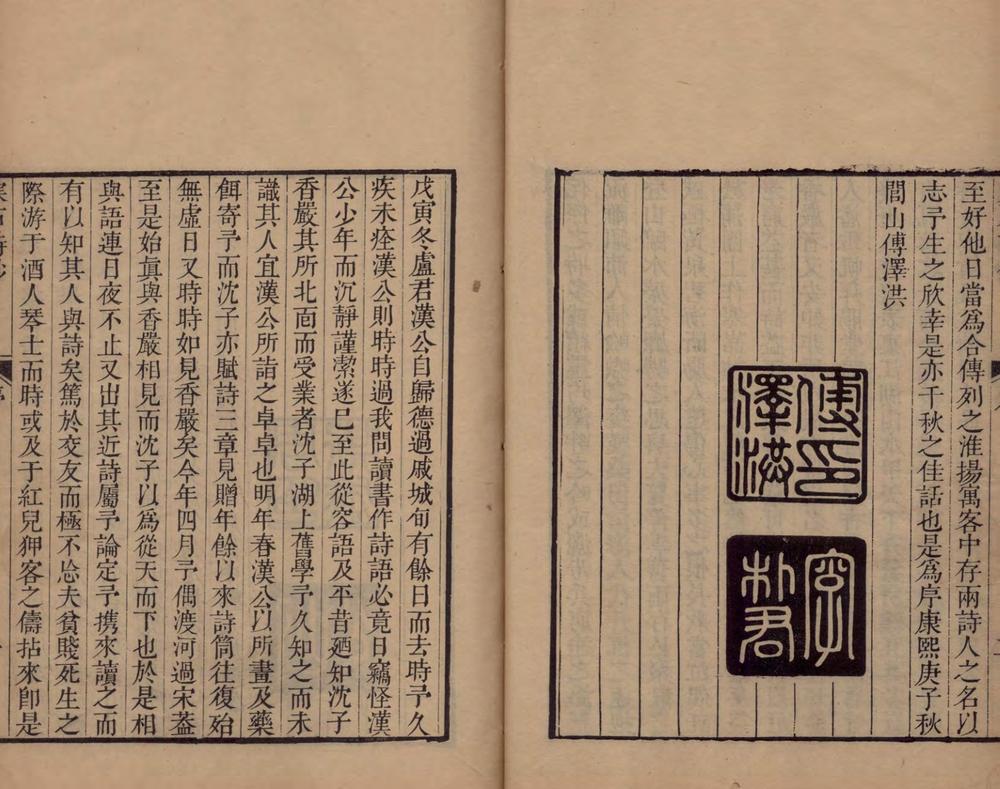 至好他日當爲合傳列之淮揚寓客中存兩詩人之名以
志予生之欣幸是亦千秋之佳話也是爲序康熙庚子秋
閭山傅澤洪
傅印
澤洪
字
君
戊寅冬盧君漢公自歸德過戚城旬有餘日而去時予久
疾未痊漢公則時時過我問讀書作詩語必竟日竊怪漢
公少年而沉靜謹潔遂已至此從容語及平昔廼知沈子
香嚴其所北面而受業者沈子湖上舊學予久知之而未
識其人宜漢公所詣之卓卓也明年春漢公以所畫及藥
餌寄予而沈子亦賦詩三章見贈年餘以來詩筒往復殆
無虛日又時時如見香嚴矣今年四月予偶渡河過宋葢
至是始眞與香嚴相見而沈子以爲從天而下也於是相
與語連日夜不止又出其近詩屬予論定予携來讀之而
有以知其人與詩矣篤於交友而極不忘夫貧賤死生之
際游于酒人琴士而時或及于紅兒狎客之儔拈來卽是